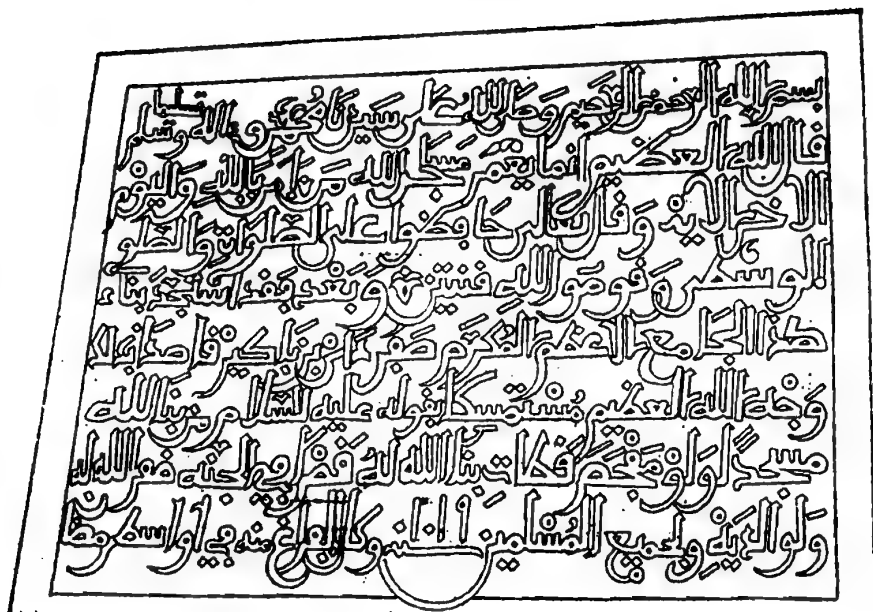 بسم الله الرحمن الرحيم وصلى الله على سيدنا محمد وءاله وسلم تسليما
قال الله العضيم انما يعمر مسجد الله من امن بالله واليوم
الاخر الاية وقال تعلى حافضوا على الصلوات والصلوة
الوسطى وقوموا لله قنتين وبعد فقد استجد بناء
هذا الجامع الاعضم المكرم صفر بن قاصدا به
وجه الله العضيم مستمسكا بقوله عليه السلام من بنا لله
مسجدا ولو مفحص قطات بنا الله له قصرا في الجنة غفر الله له
ولوالديه ولجميع المسلمين وكان الفراغ منه في اواسط رمضا